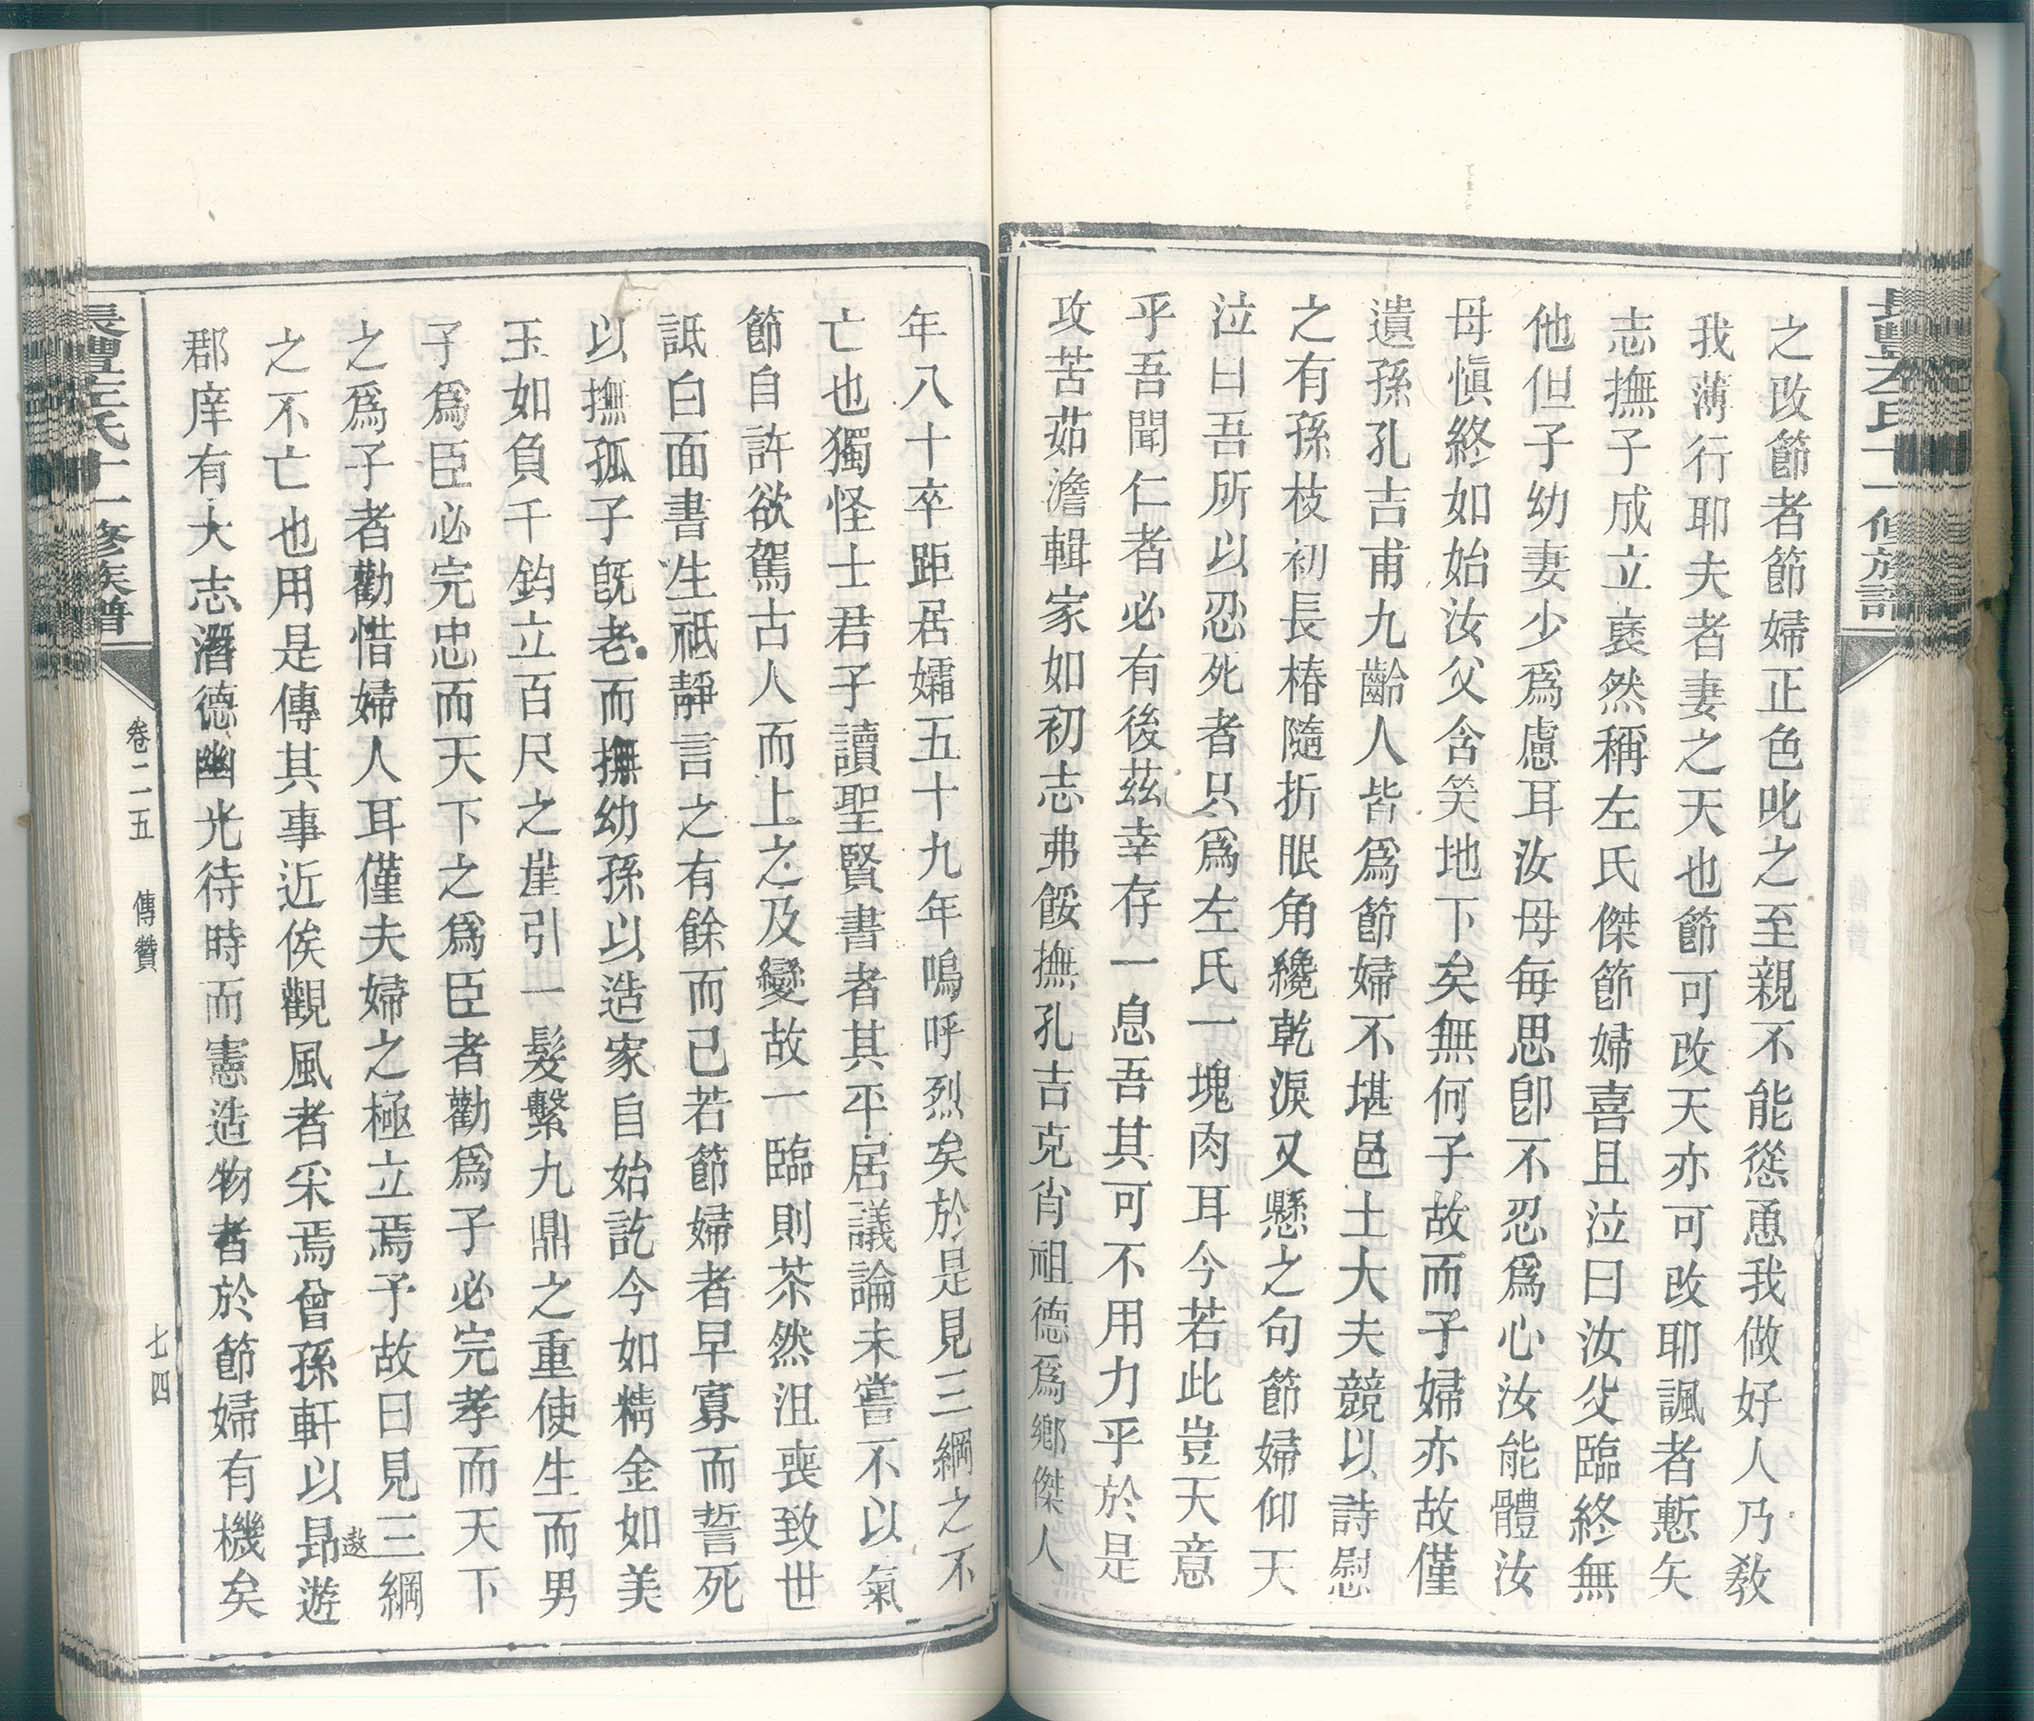 長豐左氏十一修族譜
之改節者節婦正色叱之至親不能慫恿我做好人乃教
我薄行耶夫者妻之天也節可改天亦可改耶諷者慙矢
志撫子成立裒然稱左氏傑節婦喜且泣曰汝父臨終無
他但子幼妻少爲慮耳汝母每思卽不忍爲心汝能體汝
母愼終如始汝父含笑地下矣無何子故而子婦亦故僅
遺孫孔吉甫九齡人皆爲節婦不堪邑士大夫競以詩慰
之有孫枝初長椿隨折眼角纔乾淚又懸之句節婦仰天
泣曰吾所以忍死者只爲左氏一塊肉耳今若此豈天意
乎吾聞仁者必有後茲幸存一息吾其可不用力乎於是
攻苦茹澹輯家如初志弗餒撫孔吉克肖祖德爲鄉傑人
年八十卒距居孀五十九年嗚呼烈矣於是見三綱之不
亡也獨怪士君子讀聖賢書者其平居議論未嘗不以氣
節自許欲駕古人而上之及變故一臨則茶然沮喪致世
詆白面書生祗靜言之有餘而已若節婦者早寡而誓死
以撫孤子旣老而撫幼孫以造家自始訖今如精金如美
玉如負千鈞立百尺之崖引一髮繫九鼎之重使生而男
子爲臣必完忠而天下之爲臣者勸爲子必完孝而天下
之爲子者勸惜婦人耳僅夫婦之極立焉予故曰見三綱
之不亡也用是傳其事近俟觀風者采焉曾孫軒以昻遊
遨
郡庠有大志潛德幽光待時而憲造物者於節婦有機矣
長豐左氏十一修族譜
卷二五 傳贊
七四